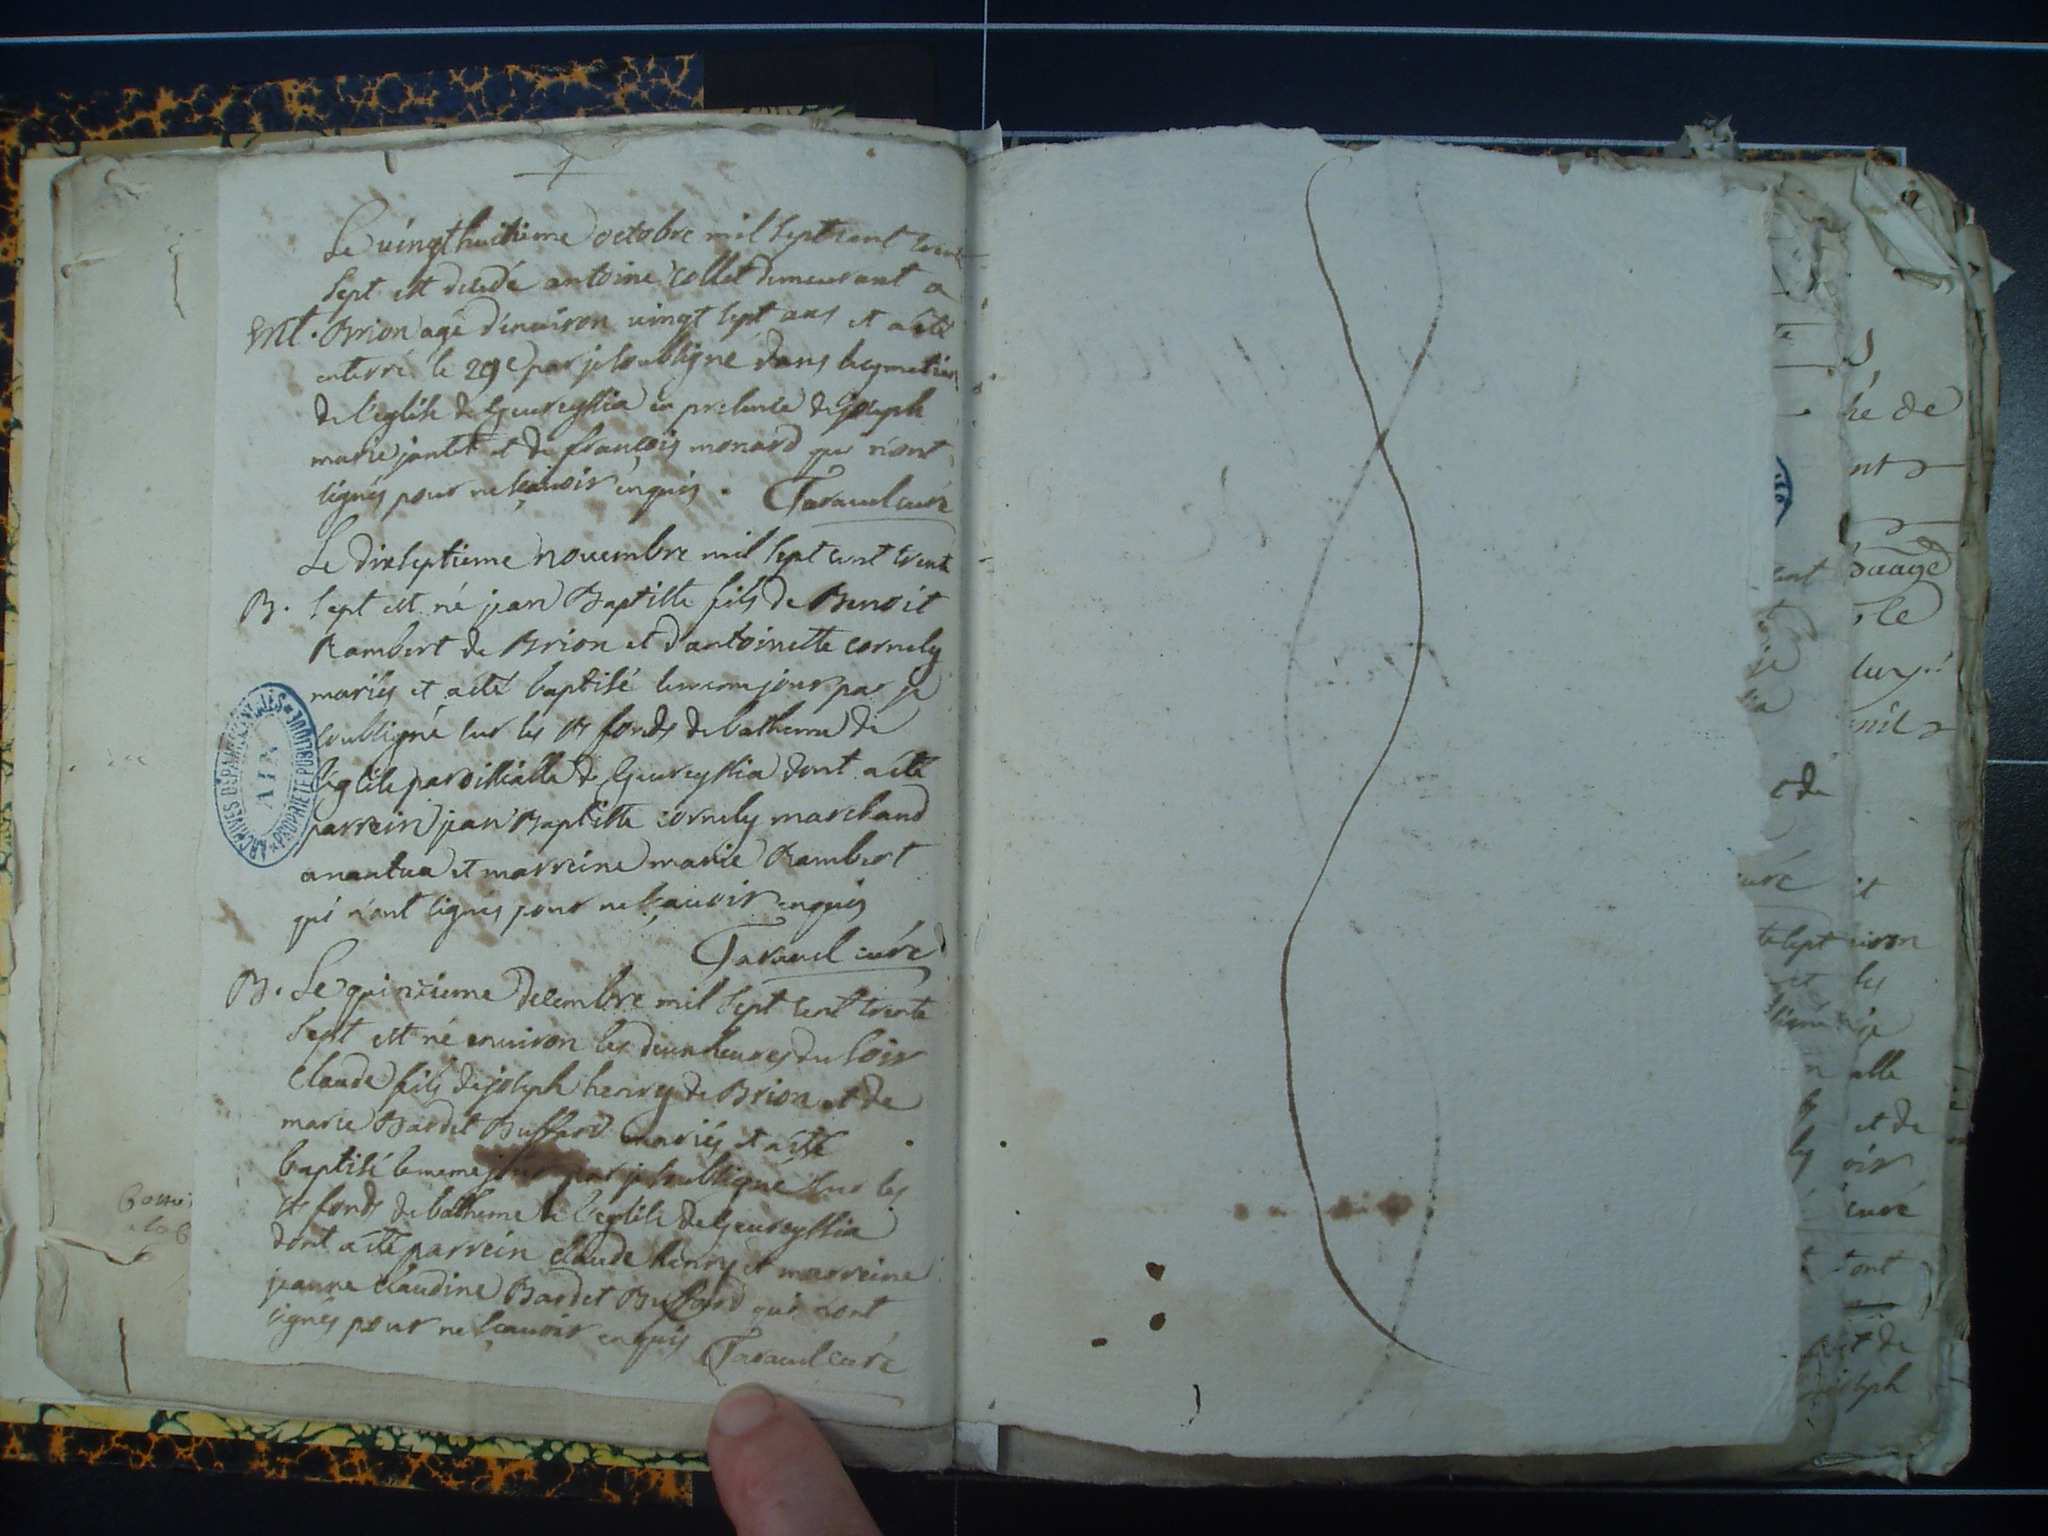 Le vingthuitieme octobre mil sept cent trente
sept est decedé antoine Collet demeurant a
Ent. Brion agé d'environ vingt sept ans et a été
enterré le 29e par je soubsigné dans le cymetiere
de l'eglise de Geureyssia en presence de joseph
marie jantet et de françois monard qui n'ont
signés pour ne sçavoir enquis. Taravel curé
Le dixseptieme novembre mil sept cent trente
B. sept est né jean Baptiste fils de Benoit
Rambert de Brion et d'antoinette cornely
mariés et a été baptisé le meme jour par je
soubsigné sur les sts fonds de batheme de
l'eglise paroissialle de Geureyssia dont a été
parrein jean Baptiste cornely marchand
a nantua et marreine marie Rambert
qui n'ont signés pour ne sçavoir enquis
Taravel curé
B. Le quinzieme decembre mil sept cent trente
sept est né environ les deux heures du soir
Claude fils de joseph henry de Brion et de
marie Bardet Buffard mariés et a été
baptisé le meme jour par je soubsigné sur les
sts fonds de batheme de l'eglise de Geureyssia
dont a été parrein claude henry et marreine
jeanne claudine Bardet Buffard qui n'ont
signés pour ne sçavoir enquis Taravel curé
ARCHIVES DÉPARTEMENTALES
AIN
PROPRIÉTÉ PUBLIQUE